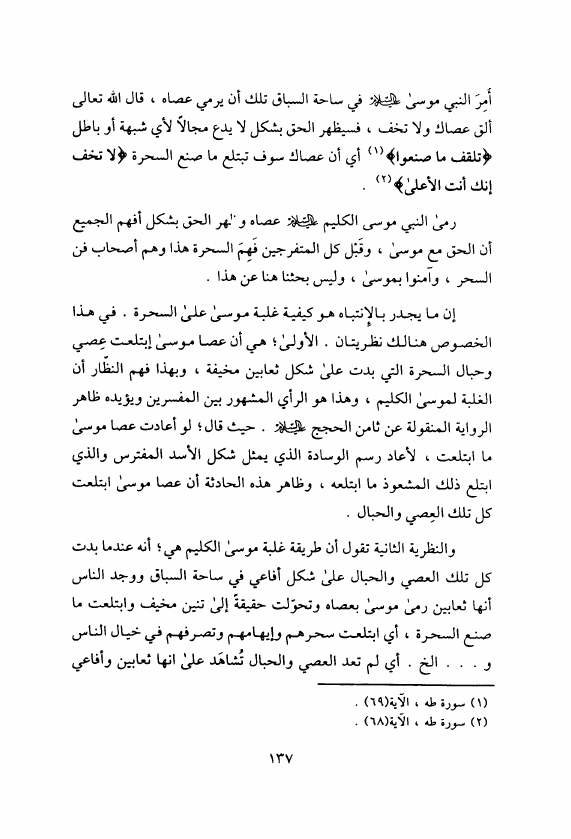 أُمِرَ النبي موسىٰ عليه السلام في ساحة السباق تلك أن يرمي عصاه ، قال الله تعالى
ألق عصاك ولا تخف ، فسيظهر الحق بشكل لا يدع مجالاً لأي شبهة أو باطل
﴿تلقف ما صنعوا﴾(١) أي أن عصاك سوف تبتلع ما صنع السحرة ﴿لا تخف
إنك أنت الأعلىٰ﴾(٢) .
رمىٰ النبي موسى الكليم عليه السلام عصاه و لهر الحق بشكل أفهم الجميع
أن الحق مع موسىٰ ، وقَبْل كل المتفرجين فَهِمَ السحرة هذا وهم أصحاب فن
السحر ، وآمنوا بموسىٰ ، وليس بحثنا هنا عن هذا .
إن ما يجدر بالإنتباه هو كيفية غلبة موسىٰ علىٰ السحرة . في هذا
الخصوص هنالك نظريتان . الأولىٰ؛ هي أن عصا موسىٰ إبتلعت عِصي
وحبال السحرة التي بدت علىٰ شكل ثعابين مخيفة ، وبهذا فهم النظّار أن
الغلبة لموسىٰ الكليم ، وهذا هو الرأي المشهور بين المفسرين ويؤيده ظاهر
الرواية المنقولة عن ثامن الحجج عليه السلام . حيث قال؛ لو أعادت عصا موسىٰ
ما ابتلعت ، لأعاد رسم الوسادة الذي يمثل شكل الأسد المفترس والذي
ابتلع ذلك المشعوذ ما ابتلعه ، وظاهر هذه الحادثة أن عصا موسىٰ ابتلعت
كل تلك العِصي والحبال .
والنظرية الثانية تقول أن طريقة غلبة موسىٰ الكليم هي؛ أنه عندما بدت
كل تلك العصي والحبال علىٰ شكل أفاعي في ساحة السباق ووجد الناس
أنها ثعابين رمىٰ موسىٰ بعصاه وتحوّلت حقيقةً إلىٰ تنين مخيف وابتلعت ما
صنع السحرة ، أي ابتلعت سحرهم وإيهامهم وتصرفهم في خيال الناس
و . . . الخ . أي لم تعد العصي والحبال تُشاهَد علىٰ انها ثعابين وأفاعي
(١) سورة طه ، الآية(٦٩) .
(٢) سورة طه ، الآية(٦٨) .
١٣٧